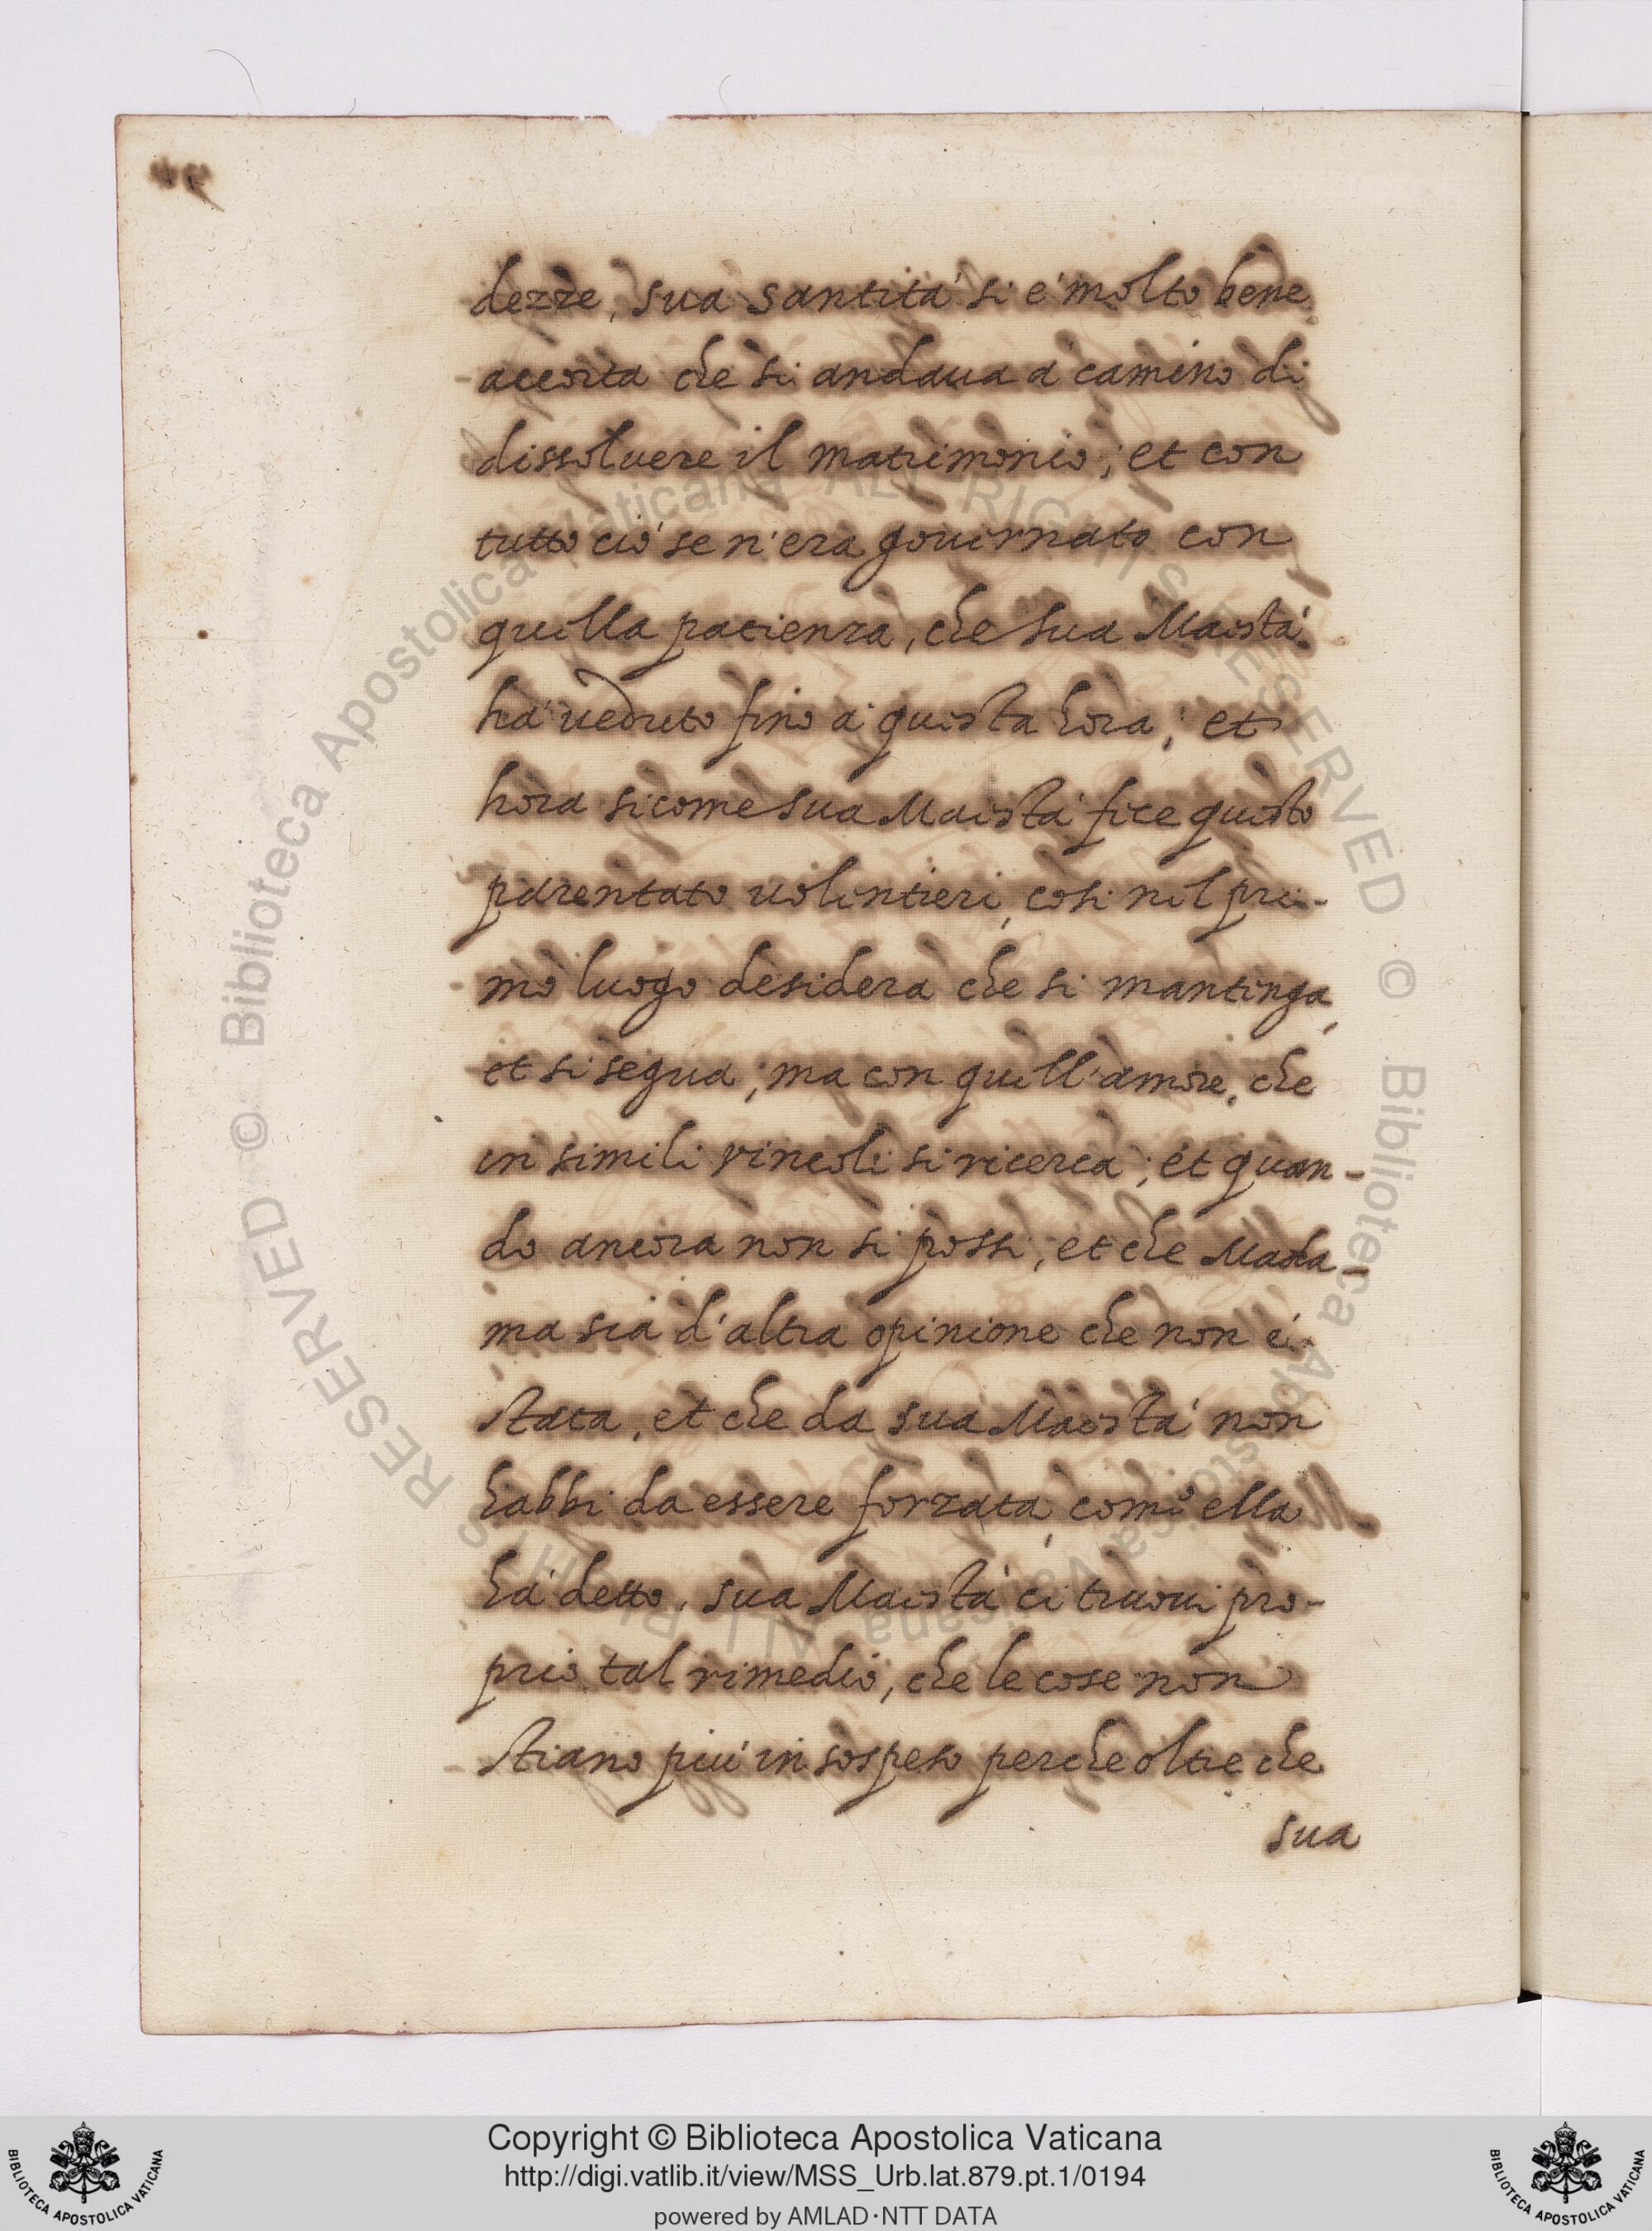 dezze, sua santità si è molto bene
accorta che si andaua à camino di
dissoluere il matrimonio; et con
tutto ciò se n'era gouernato con
quella patienza, che sua Maestà
hà ueduto fino à questa hora; et
hora sicome sua Maestà fece questo
parentato uolentieri, cosi nel pri-
mo luogo desidera che si mantenga,
et si segua; ma con quell'amore, che
in simili vincoli si ricerca; et quan-
do ancora non si possi, et che Mada-
ma sia d'altra opinione che non è
stata, et che da sua Maestà non
habbi da essere forzata, come ella
hà detto, sua Maestà ci truoui pro-
prio tal rimedio, che le cose non
stiano più in sospeso perche oltre che
sua
© Biblioteca Apostolica Vaticana ALL RIGHTS RESERVED © Biblioteca Apostolica Vaticana ALL RIGHTS RESERVED
Copyright © Biblioteca Apostolica Vaticana
http://digi.vatlib.it/view/MSS_Urb.lat.879.pt.1/0194
powered by AMLAD·NTT DATA
BIBLIOTECA APOSTOLICA VATICANA
BIBLIOTECA APOSTOLICA VATICANA